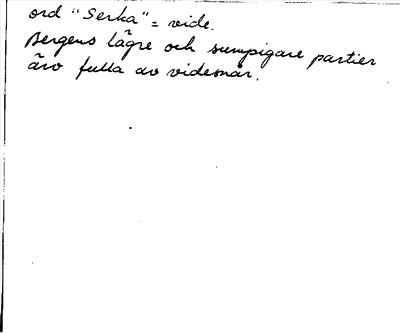 ord "Serka" = vide.
Bergens lägre och sumpigare partier
äro fulla av videsnår.